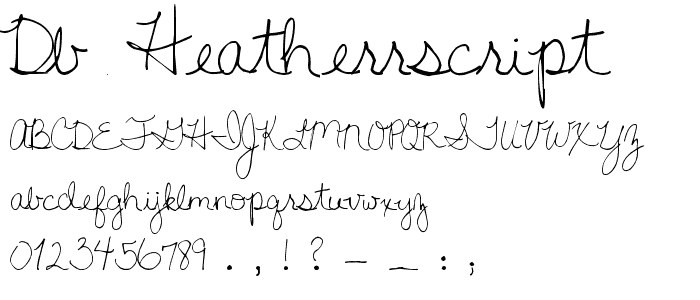 Db Heatherrscript
ABCDEFGHIJKLMNOPQRSTUVWXYZ
abcdefghijklmnopqrstuvwxyz
0123456789 . , ! ? - _ : ;